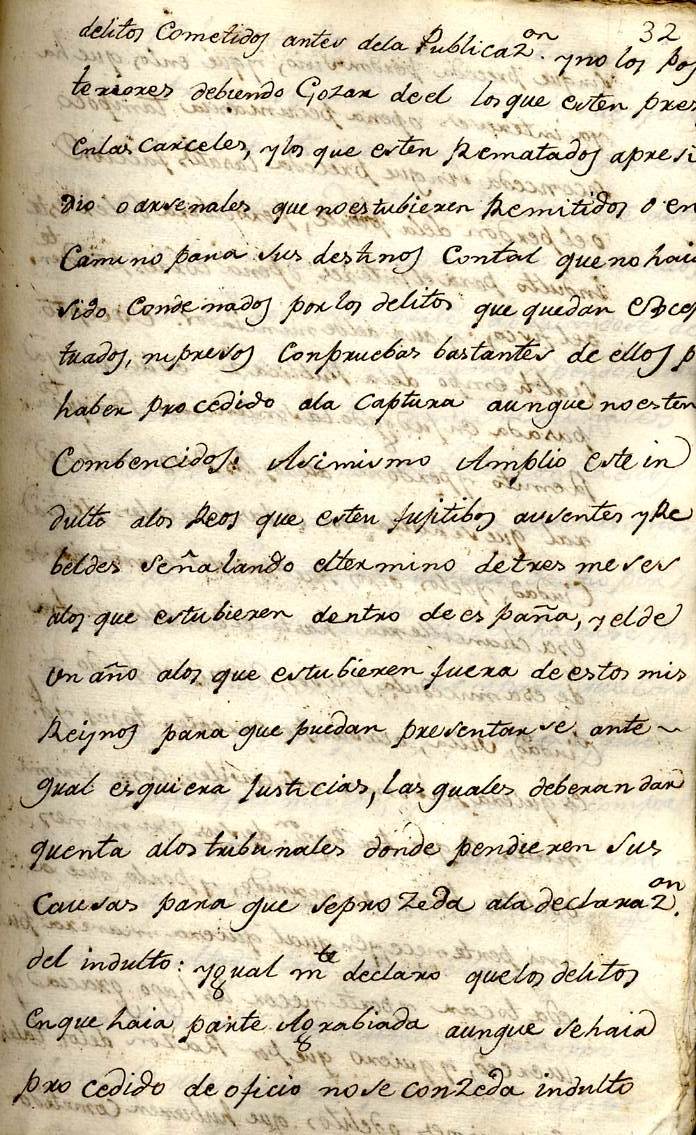 32
delitos Cometidos antes dela Publicaz.on y no los Pos
teriores debiendo Gozar de el los que esten pres
enlas carceles, y los que esten Rematados apresi
dio o arsenales que no estubieren Remitidos o en
Camino para sus destinos Contal que no haia
sido Condenados por los delitos que quedan escep
tuados, ni presos Conpruebas bastantes de ellos p
haber procedido ala Captura aunque no esten
Combencidos: Asimismo Amplio este in
dulto alos Reos que esten fujitibos ausentes y Re
beldes señalando eltermino detres meses
alos que estubieren dentro de españa, y el de
un año alos que estubieren fuera de estos mis
Reijnos para que puedan presentarse ante
qual esquiera Justicias, las quales deberan dar
quenta alos tribunales donde pendieren sus
Causas para que seproZeda ala declaraz.on
del indulto: ygual mte declaro quelos delitos
Enque haia parte Agrabiada aunque se haia
procedido de oficio no se conZeda indulto